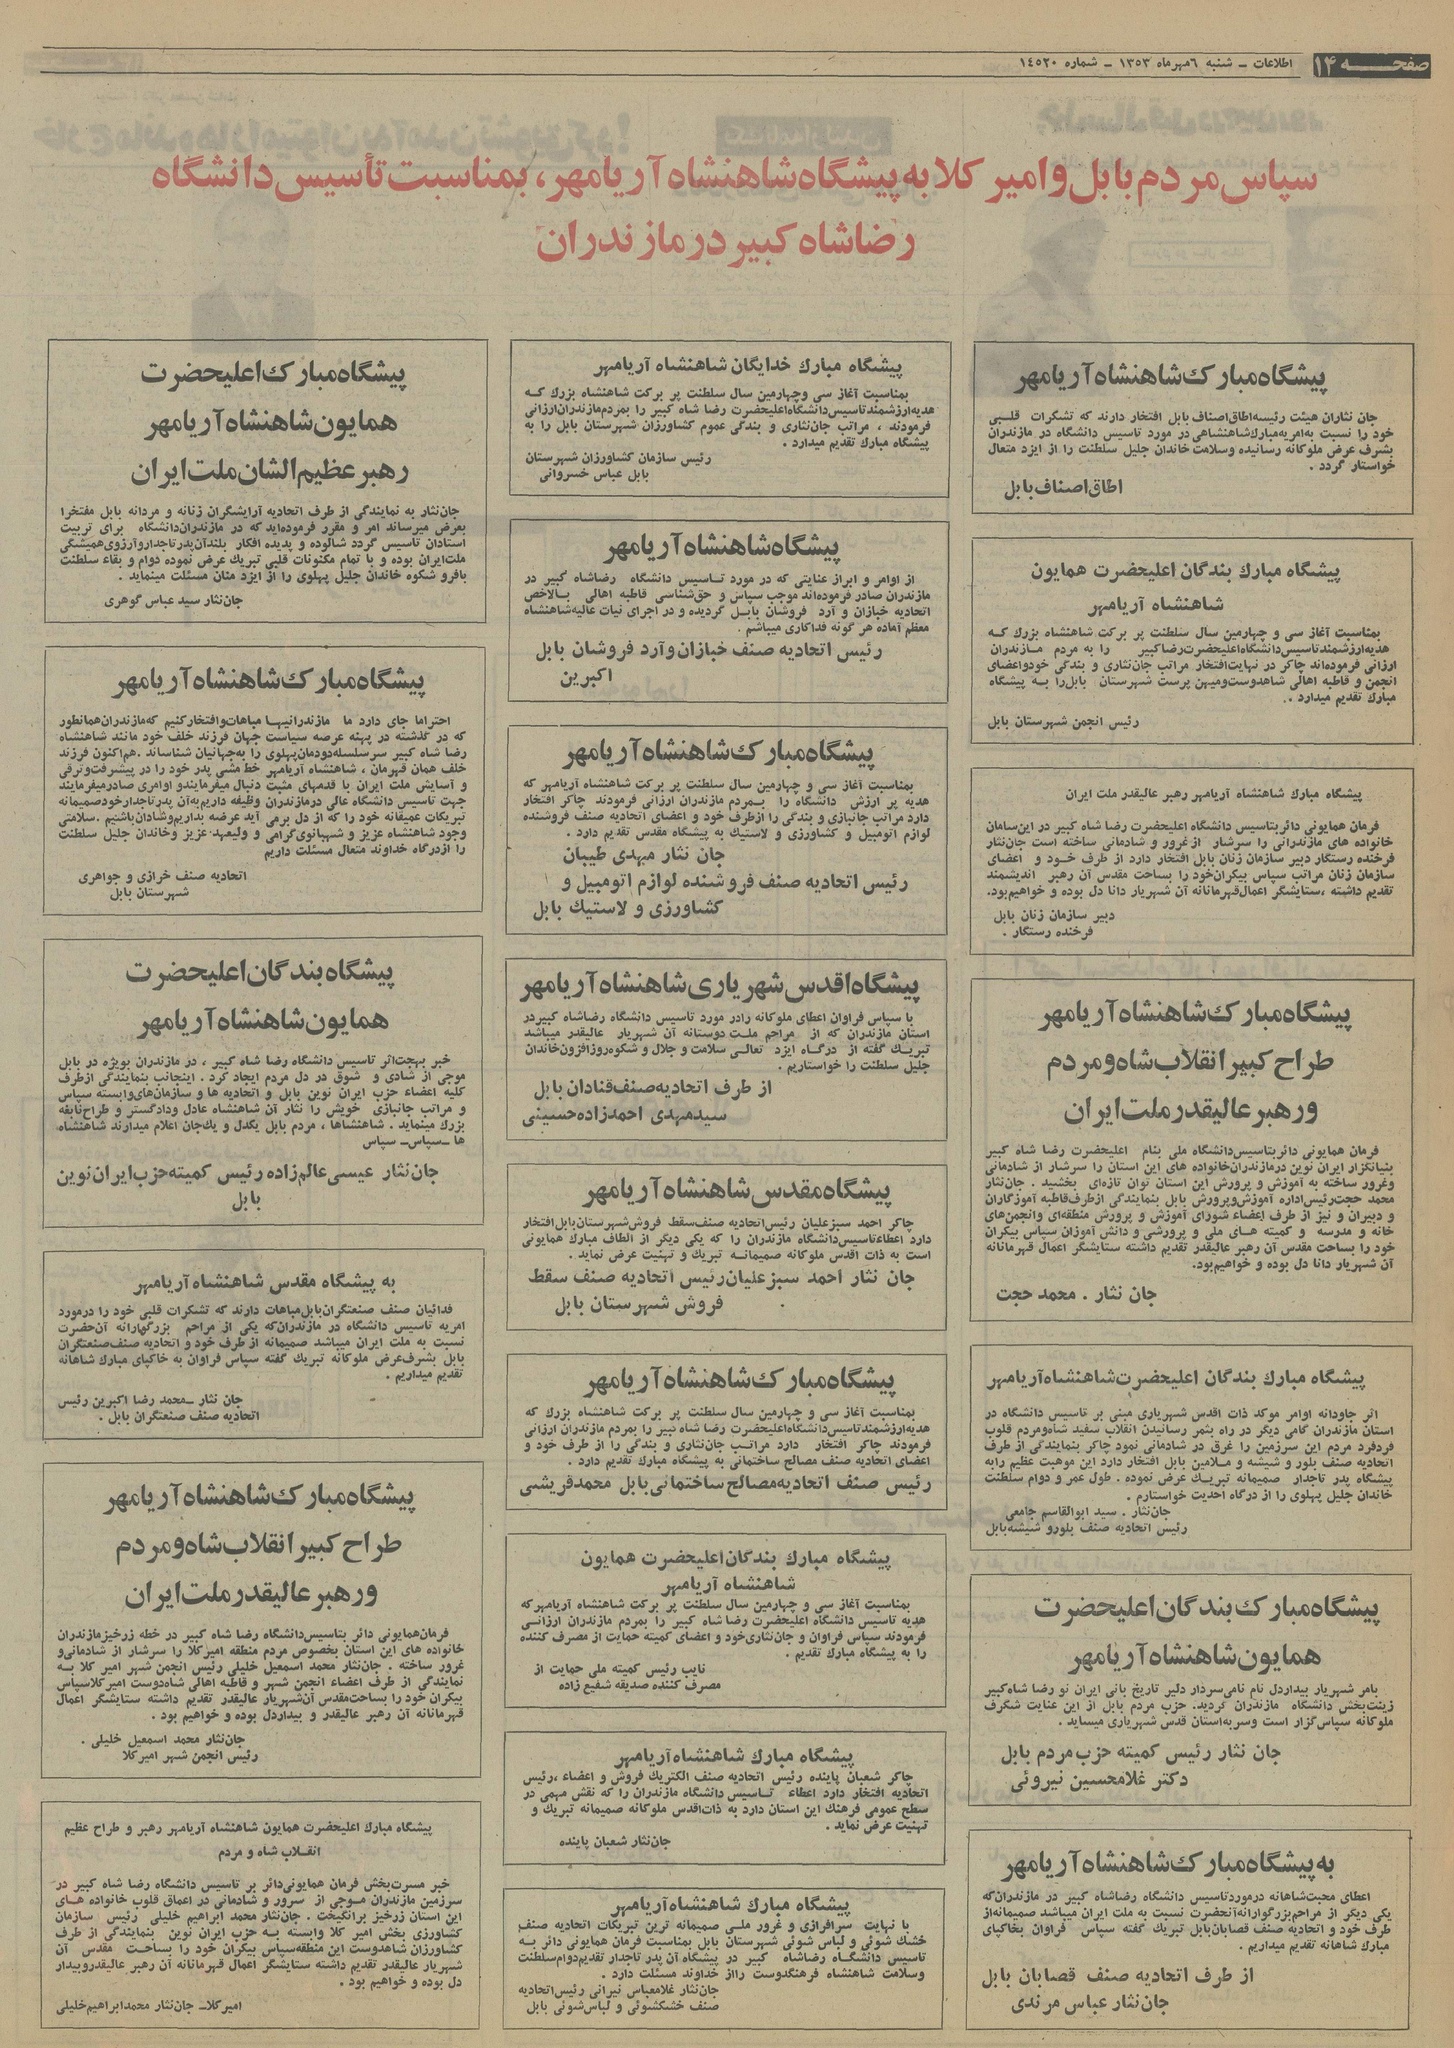 صفحه ۱۴
اطلاعات ـ شنبه ۶ مهرماه ۱۳۵۳ ـ شماره ۱۴۵۲۰
سپاس مردم بابل و امیر کلا به پیشگاه شاهنشاه آریامهر، بمناسبت تأسیس دانشگاه
رضاشاه کبیر در مازندران
پیشگاه مبارک شاهنشاه آریامهر
جان نثاران هیئت رئیسه اطاق اصناف بابل افتخار دارند که تشکرات قلبی
خود را نسبت به امریه مبارک شاهنشاهی در مورد تاسیس دانشگاه در مازندران
بشرف عرض ملوکانه رسانیده وسلامت خاندان جلیل سلطنت را از ایزد متعال
خواستار گردد .
اطاق اصناف بابل
پیشگاه مبارک بندگان اعلیحضرت همایون
شاهنشاه آریامهر
بمناسبت آغاز سی و چهارمین سال سلطنت پر برکت شاهنشاه بزرگ که
هدیه ارزشمند تاسیس دانشگاه اعلیحضرت رضا کبیر را به مردم مازندران
ارزانی فرموده اند چاکر در نهایت افتخار مراتب جان نثاری و بندگی خود واعضای
انجمن و قاطبه اهالی شاهدوست ومیهن پرست شهرستان بابل را به پیشگاه
مبارک تقدیم میدارد .
رئیس انجمن شهرستان بابل
پیشگاه مبارک شاهنشاه آریامهر رهبر عالیقدر ملت ایران
فرمان همایونی دائر بتاسیس دانشگاه رضا شاه کبیر در این سامان
خانواده های مازندرانی را سرشار از غرور و شادمانی ساخته است جان نثار
فرخنده رستگار دبیر سازمان زنان بابل افتخار دارد از طرف خود و اعضای
سازمان زنان مراتب سپاس بیکران خود را بساحت مقدس آن رهبر اندیشمند
تقدیم داشته ، ستایشگر اعمال قهرمانانه آن شهریار دانا دل بوده و خواهیم بود.
دبیر سازمان زنان بابل
فرخنده رستگار .
پیشگاه مبارک شاهنشاه آریامهر
طراح کبیر انقلاب شاه و مردم
ورهبر عالیقدر ملت ایران
فرمان همایونی دائر بتاسیس دانشگاه ملی بنام اعلیحضرت رضا شاه کبیر
بنیانگزار ایران نوین در مازندران خانواده های این استان را سرشار از شادمانی
وغرور ساخته به آموزش و پرورش این استان توان تازه ای بخشید . جان نثار
محمد حجت رئیس اداره آموزش وپرورش بابل بنمایندگی از طرف قاطبه آموزگاران
و دبیران و نیز از طرف اعضاء شورای آموزش و پرورش منطقه ای وانجمن های
خانه و مدرسه و کمیته های ملی و پرورشی و دانش آموزان سپاس بیکران
خود را بساحت مقدس آن رهبر عالیقدر تقدیم داشته ستایشگر اعمال قهرمانانه
آن شهریار دانا دل بوده و خواهیم بود.
جان نثار . محمد حجت
پیشگاه مبارک بندگان اعلیحضرت شاهنشاه آریامهر
اثر جاودانه اوامر موکد ذات اقدس شهریاری مبنی بر تاسیس دانشگاه در
استان مازندران گامی دیگر در راه بثمر رسانیدن انقلاب سفید شاه ومردم قلوب
فرد فرد مردم این سرزمین را غرق در شادمانی نمود چاکر بنمایندگی از طرف
اتحادیه صنف بلور و شیشه و ملامین بابل افتخار دارد این موهبت عظیم را به
پیشگاه پدر تاجدار صمیمانه تبریک عرض نموده . طول عمر و دوام سلطنت
خاندان جلیل پهلوی را از درگاه احدیت خواستارم .
جان نثار . سید ابوالقاسم جامعی
رئیس اتحادیه صنف بلور و شیشه بابل
پیشگاه مبارک بندگان اعلیحضرت
همایون شاهنشاه آریامهر
بامر شهریار بیداردل نام نامی سردار دلیر تاریخ بانی ایران نو رضا شاه کبیر
زینت بخش دانشگاه مازندران گردید. حزب مردم بابل از این عنایت شگرف
ملوکانه سپاس گزار است وسر به استان قدس شهریاری میساید .
جان نثار رئیس کمیته حزب مردم بابل
دکتر غلامحسین نیروئی
به پیشگاه مبارک شاهنشاه آریامهر
اعطای محبت شاهانه در مورد تاسیس دانشگاه رضا شاه کبیر در مازندران که
یکی دیگر از مراحم بزرگوارانه آنحضرت نسبت به ملت ایران میباشد صمیمانه از
طرف خود و اتحادیه صنف قصابان بابل تبریک گفته سپاس فراوان بخاکپای
مبارک شاهانه تقدیم میداریم .
از طرف اتحادیه صنف قصابان بابل
جان نثار عباس مرندی
پیشگاه مبارک خدایگان شاهنشاه آریامهر
بمناسبت آغاز سی وچهارمین سال سلطنت پر برکت شاهنشاه بزرگ که
هدیه ارزشمند تاسیس دانشگاه اعلیحضرت رضا شاه کبیر را بمردم مازندران ارزانی
فرمودند ، مراتب جان نثاری و بندگی عموم کشاورزان شهرستان بابل را به
پیشگاه مبارک تقدیم میدارد .
رئیس سازمان کشاورزان شهرستان
بابل عباس خسروانی
پیشگاه شاهنشاه آریامهر
از اوامر و ابراز عنایتی که در مورد تاسیس دانشگاه رضاشاه کبیر در
مازندران صادر فرموده اند موجب سپاس و حق شناسی قاطبه اهالی بالاخص
اتحادیه خبازان و آرد فروشان بابل گردیده و در اجرای نیات عالیه شاهنشاه
معظم آماده هر گونه فداکاری میباشم .
رئیس اتحادیه صنف خبازان وآرد فروشان بابل
اکبرین
پیشگاه مبارک شاهنشاه آریامهر
بمناسبت آغاز سی و چهارمین سال سلطنت پر برکت شاهنشاه آریامهر که
هدیه پر ارزش دانشگاه را بمردم مازندران ارزانی فرمودند چاکر افتخار
دارد مراتب جانبازی و بندگی را از طرف خود و اعضای اتحادیه صنف فروشنده
لوازم اتومبیل و کشاورزی و لاستیک به پیشگاه مقدس تقدیم دارد .
جان نثار مهدی طیبان
رئیس اتحادیه صنف فروشنده لوازم اتومبیل و
کشاورزی و لاستیک بابل
پیشگاه اقدس شهریاری شاهنشاه آریامهر
با سپاس فراوان اعطای ملوکانه را در مورد تاسیس دانشگاه رضاشاه کبیر در
استان مازندران که از مراحم ملت دوستانه آن شهریار عالیقدر میباشد
تبریک گفته از درگاه ایزد تعالی سلامت و جلال و شکوه روز افزون خاندان
جلیل سلطنت را خواستاریم .
از طرف اتحادیه صنف قنادان بابل
سید مهدی احمدزاده حسینی
پیشگاه مقدس شاهنشاه آریامهر
چاکر احمد سبز علیان رئیس اتحادیه صنف سقط فروش شهرستان بابل افتخار
دارد اعطاء تاسیس دانشگاه مازندران را که یکی دیگر از الطاف مبارک همایونی
است به ذات اقدس ملوکانه صمیمانه تبریک و تهنیت عرض نماید .
جان نثار احمد سبز علیان رئیس اتحادیه صنف سقط
فروش شهرستان بابل
پیشگاه مبارک شاهنشاه آریامهر
بمناسبت آغاز سی و چهارمین سال سلطنت پر برکت شاهنشاه بزرگ که
هدیه ارزشمند تاسیس دانشگاه اعلیحضرت رضا شاه کبیر را بمردم مازندران ارزانی
فرمودند چاکر افتخار دارد مراتب جان نثاری و بندگی را از طرف خود و
اعضای اتحادیه صنف مصالح ساختمانی به پیشگاه مبارک تقدیم دارد .
رئیس صنف اتحادیه مصالح ساختمانی بابل محمد قریشی
پیشگاه مبارک بندگان اعلیحضرت همایون
شاهنشاه آریامهر
بمناسبت آغاز سی و چهارمین سال سلطنت پر برکت شاهنشاه آریامهر که
هدیه تاسیس دانشگاه اعلیحضرت رضا شاه کبیر را بمردم مازندران ارزانی
فرمودند سپاس فراوان و جان نثاری خود و اعضای کمیته حمایت از مصرف کننده
را به پیشگاه مبارک تقدیم .
نایب رئیس کمیته ملی حمایت از
مصرف کننده صدیقه شفیع زاده
پیشگاه مبارک شاهنشاه آریامهر
چاکر شعبان پاینده رئیس اتحادیه صنف الکتریک فروش و اعضاء ، رئیس
اتحادیه افتخار دارد اعطاء تاسیس دانشگاه مازندران را که نقش مهمی در
سطح عمومی فرهنگ این استان دارد به ذات اقدس ملوکانه صمیمانه تبریک و
تهنیت عرض نماید .
جان نثار شعبان پاینده
پیشگاه مبارک شاهنشاه آریامهر
با نهایت سرافرازی و غرور ملی صمیمانه ترین تبریکات اتحادیه صنف
خشک شوئی و لباس شوئی شهرستان بابل بمناسبت فرمان همایونی دائر به
تاسیس دانشگاه رضاشاه کبیر در پیشگاه آن پدر تاجدار تقدیم دوام سلطنت
وسلامت شاهنشاه فرهنگدوست را از خداوند مسئلت دارد .
جان نثار غلامعباس نیرانی رئیس اتحادیه
صنف خشکشوئی و لباس شوئی بابل
پیشگاه مبارک اعلیحضرت
همایون شاهنشاه آریامهر
رهبر عظیم الشان ملت ایران
جان نثار به نمایندگی از طرف اتحادیه آرایشگران زنانه و مردانه بابل مفتخرا
بعرض میرساند امر و مقرر فرموده اید که در مازندران دانشگاه برای تربیت
استادان تاسیس گردد شالوده و پدیده افکار بلند آن پدر تاجدار و آرزوی همیشگی
ملت ایران بوده و با تمام مکنونات قلبی تبریک عرض نموده دوام و بقاء سلطنت
بافرو شکوه خاندان جلیل پهلوی را از ایزد منان مسئلت مینماید .
جان نثار سید عباس گوهری
پیشگاه مبارک شاهنشاه آریامهر
احتراما جای دارد ما مازندرانیها مباهات وافتخار کنیم که مازندران همانطور
که در گذشته در پهنه عرصه سیاست جهان فرزند خلف خود مانند شاهنشاه
رضا شاه کبیر سر سلسله دودمان پهلوی را به جهانیان شناساند ، هم اکنون فرزند
خلف همان قهرمان ، شاهنشاه آریامهر خط مشی پدر خود را در پیشرفت وترقی
و آسایش ملت ایران با قدمهای مثبت دنبال میفرمایند و اوامری صادر میفرمایند
جهت تاسیس دانشگاه عالی در مازندران وظیفه داریم به آن پدر تاجدار خود صمیمانه
تبریکات عمیقانه خود را که از دل برمی آید عرضه بداریم وشادان باشیم . سلامتی
وجود شاهنشاه عزیز و شهبانوی گرامی و ولیعهد عزیز وخاندان جلیل سلطنت
را از درگاه خداوند متعال مسئلت داریم
اتحادیه صنف خرازی و جواهری
شهرستان بابل
پیشگاه بندگان اعلیحضرت
همایون شاهنشاه آریامهر
خبر بهجت اثر تاسیس دانشگاه رضا شاه کبیر ، در مازندران بویژه در بابل
موجی از شادی و شوق در دل مردم ایجاد کرد . اینجانب بنمایندگی از طرف
کلیه اعضاء حزب ایران نوین بابل و اتحادیه ها و سازمان های وابسته سپاس
و مراتب جانبازی خویش را نثار آن شاهنشاه عادل ودادگستر و طراح نابغه
بزرگ مینماید . شاهنشاها ، مردم بابل یکدل و یک جان اعلام میدارند شاهنشاه
ها ـ سپاس ـ سپاس
جان نثار عیسی عالم زاده رئیس کمیته حزب ایران نوین
بابل
به پیشگاه مقدس شاهنشاه آریامهر
فدائیان صنف صنعتگران بابل مباهات دارند که تشکرات قلبی خود را در مورد
امریه تاسیس دانشگاه در مازندران که یکی از مراحم بزرگوارانه آن حضرت
نسبت به ملت ایران میباشد صمیمانه از طرف خود و اتحادیه صنف صنعتگران
بابل بشرف عرض ملوکانه تبریک گفته سپاس فراوان به خاکپای مبارک شاهانه
تقدیم میداریم .
جان نثار ـ محمد رضا اکبرین رئیس
اتحادیه صنف صنعتگران بابل .
پیشگاه مبارک شاهنشاه آریامهر
طراح کبیر انقلاب شاه و مردم
ورهبر عالیقدر ملت ایران
فرمان همایونی دائر بتاسیس دانشگاه رضا شاه کبیر در خطه زرخیز مازندران
خانواده های این استان بخصوص مردم منطقه امیر کلا را سرشار از شادمانی و
غرور ساخته . جان نثار محمد اسمعیل خلیلی رئیس انجمن شهر امیر کلا به
نمایندگی از طرف اعضاء انجمن شهر و قاطبه اهالی شاه دوست امیر کلا سپاس
بیکران خود را بساحت مقدس آن شهریار عالیقدر تقدیم داشته ستایشگر اعمال
قهرمانانه آن رهبر عالیقدر و بیداردل بوده و خواهیم بود .
جان نثار محمد اسمعیل خلیلی .
رئیس انجمن شهر امیر کلا
پیشگاه مبارک اعلیحضرت همایون شاهنشاه آریامهر رهبر و طراح عظیم
انقلاب شاه و مردم
خبر مسرت بخش فرمان همایونی دائر بر تاسیس دانشگاه رضا شاه کبیر در
سرزمین مازندران موجی از سرور و شادمانی در اعماق قلوب خانواده های
این استان زرخیز برانگیخت . جان نثار محمد ابراهیم خلیلی رئیس سازمان
کشاورزی بخش امیر کلا وابسته به حزب ایران نوین بنمایندگی از طرف
کشاورزان شاهدوست این منطقه سپاس بیکران خود را بساحت مقدس آن
شهریار عالیقدر تقدیم داشته ستایشگر اعمال قهرمانانه آن رهبر عالیقدر و بیدار
دل بوده و خواهیم بود .
امیر کلا ـ جان نثار محمد ابراهیم خلیلی